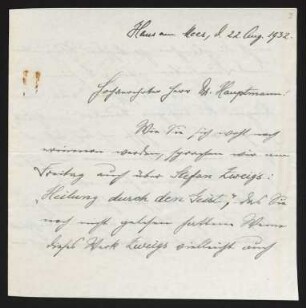 Haus am Meer, d. 22. Aug. 1932.
Hochverehrter Herr Dr. Hauptmann!
Wie Sie sich wohl noch
erinnern werden, sprachen wir am
Freitag auch über Stefan Zweigs:
„Heilung durch den Geist", das Sie
noch nicht gelesen hatten. Wenn
dieses Werk Zweigs vielleicht auch